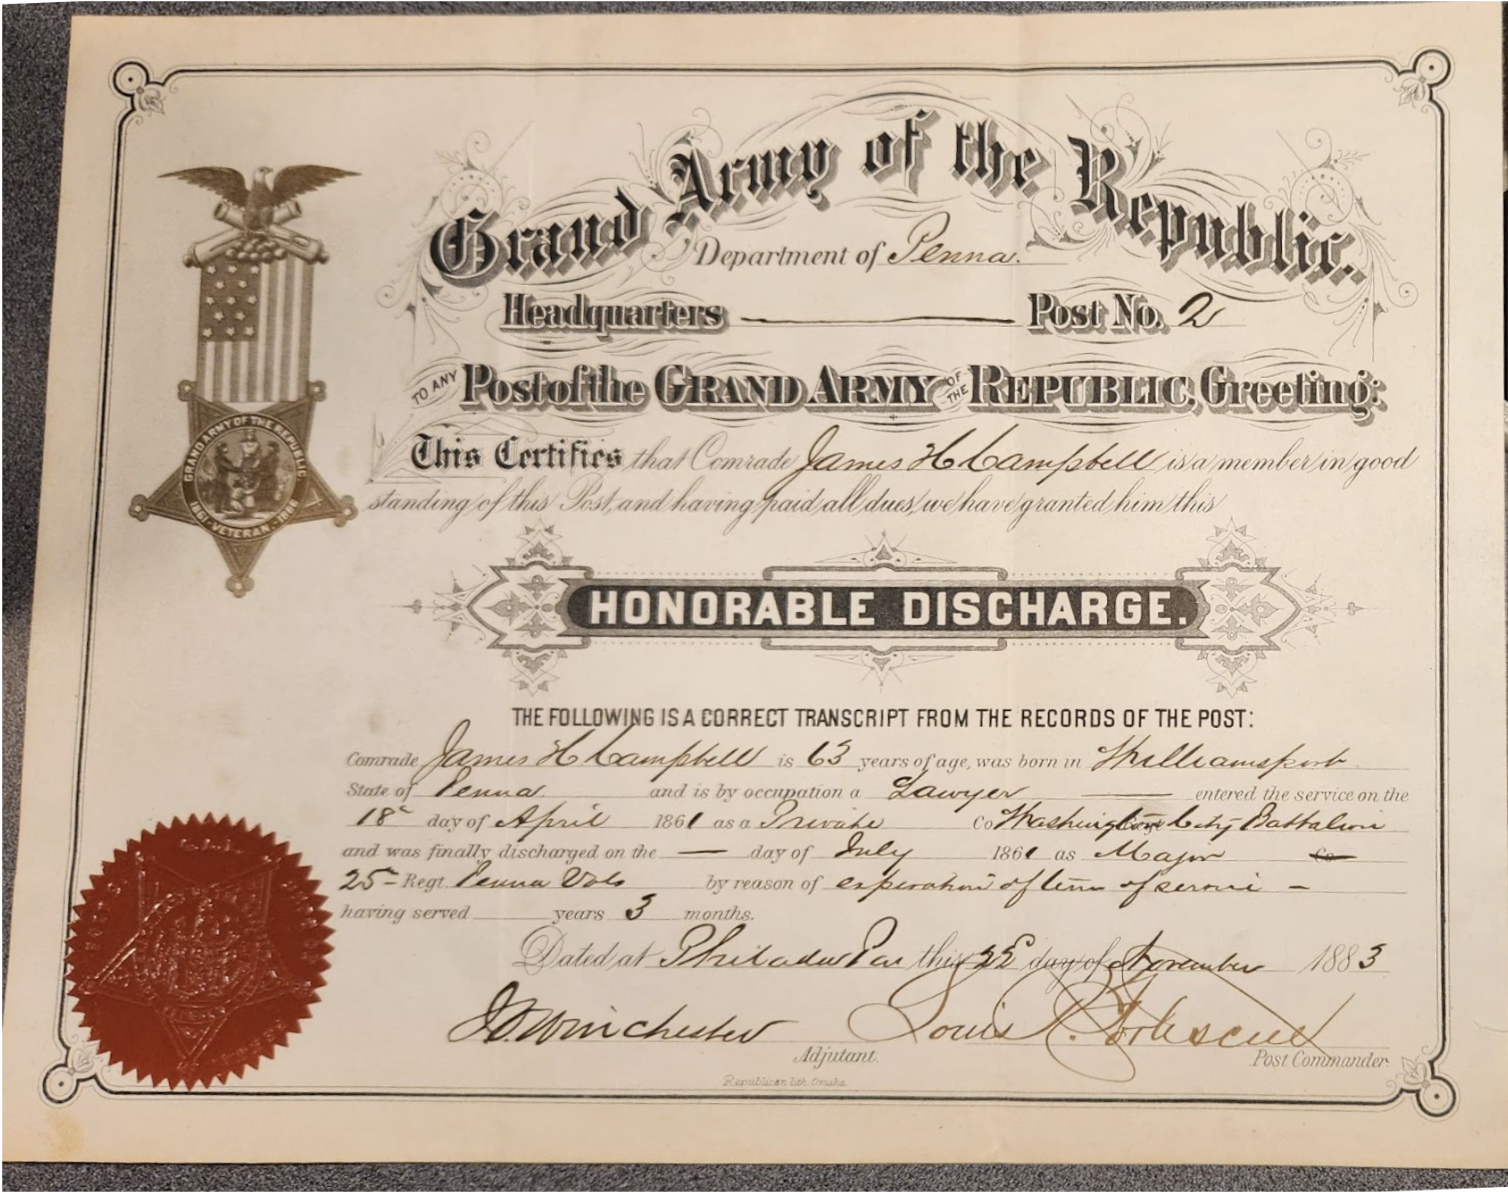 Grand Army of the Republic.
Department of Penna.
Headquarters Post No. 2
TO ANY Post of the GRAND ARMY OF THE REPUBLIC, Greeting:
This Certifies that Comrade James H Campbell is a member in good
standing of this Post, and having paid all dues, we have granted him this
GRAND ARMY OF THE REPUBLIC
1861 - VETERAN - 1866
HONORABLE DISCHARGE.
THE FOLLOWING IS A CORRECT TRANSCRIPT FROM THE RECORDS OF THE POST:
Comrade James H Campbell is 63 years of age, was born in Williamsport
State of Penna and is by occupation a Lawyer entered the service on the
18 day of April 1861 as a Private Co Washington City Battalion
and was finally discharged on the — day of July 1861 as Major Co
25 Regt. Penna Vols by reason of expiration of term of service —
having served years 3 months.
Dated at Philada Pa this 22 day of November 1883
Winchester Louis
Adjutant. Post Commander
Republican lith. Omaha.